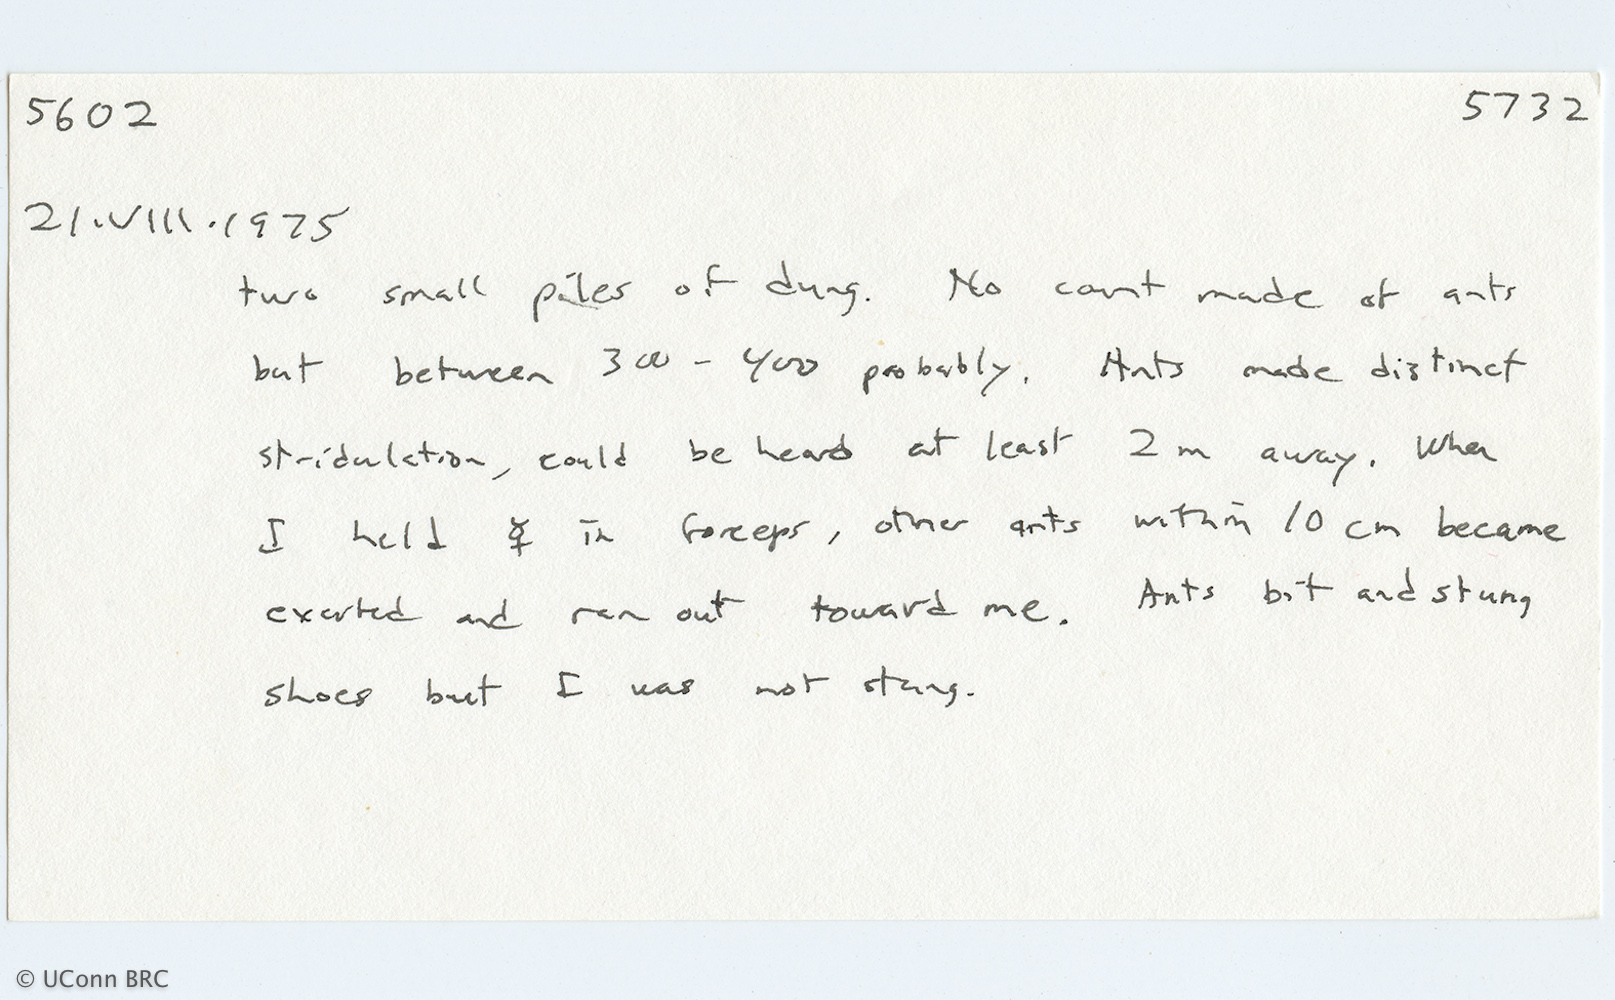 5602 5732
21.VIII.1975
two small piles of dung. No count made of ants
but between 300 - 400 probably. Ants made distinct
stridulation, could be heard at least 2 m away. When
I held ☿ in forceps, other ants within 10 cm became
excited and ran out toward me. Ants bit and stung
shoes but I was not stung.
© UConn BRC